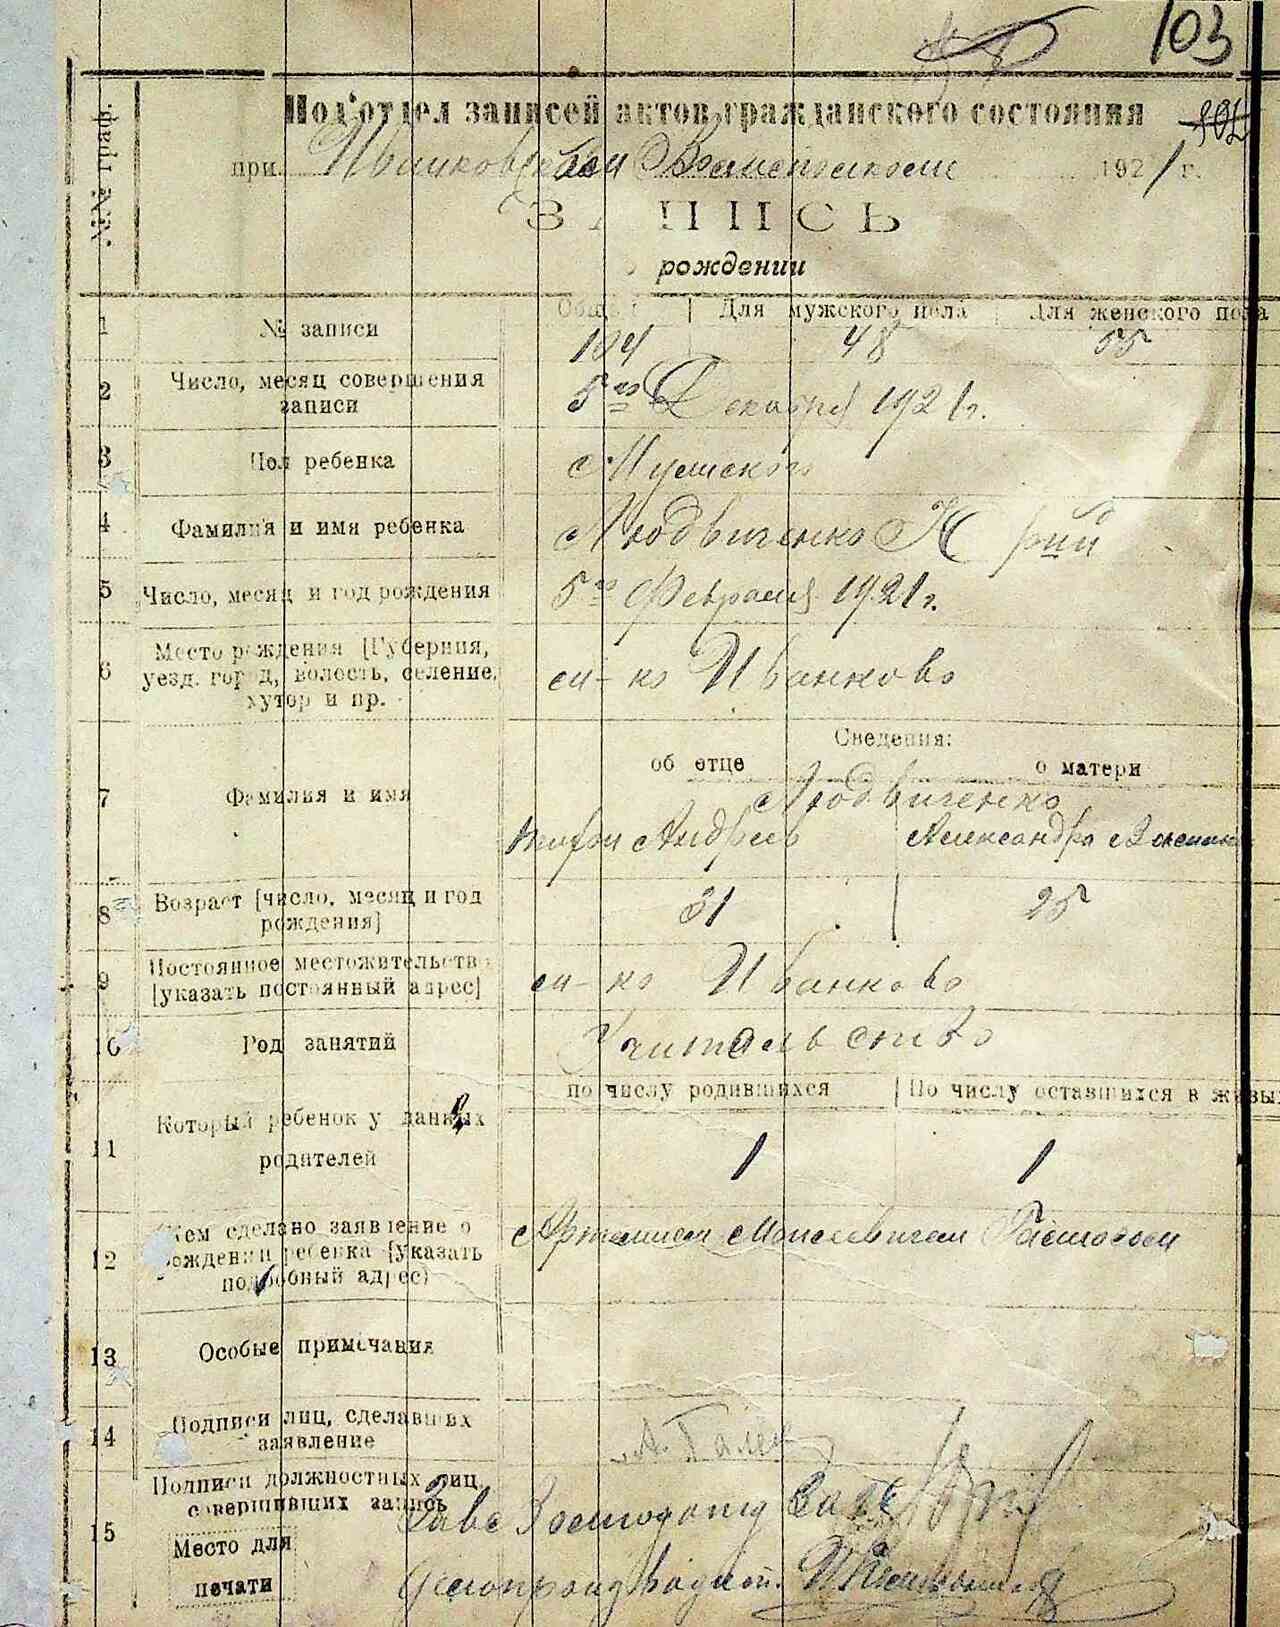 103
Под'отдел записей актов гражданского состояния
102
при Волисполкоме 1921 г.
ЗАПИСЬ
рождении
№№ граф.
1 № записи Общ Для мужского пола Для женского пола
104 48 55
2 Число, месяц совершения записи
5го Декабря 1921 г.
3 Пол ребенка Мужского
4 Фамилия и имя ребенка Людвиченко Юрий
5 Число, месяц и год рождения 5го Февраля 1921 г.
6 Место рождения [Губерния,
уезд. город, волость, селение,
хутор и пр.
м-ко Иванково
Сведения:
об отце о матери
7 Фамилия и имя Людвиченко
Андреев Александра
8 Возраст [число, месяц и год
рождения]
31 25
9 Постоянное местожительство
[указать постоянный адрес]
м-ко Иванково
10 Род занятий Учительство
по числу родившихся По числу оставшихся в живых
11 Который ребенок у данных
родителей
1 1
12 Кем сделано заявление о
рождении ребенка [указать
подробный адрес)
Артемием Моисеевичем
13 Особые примечания
14 Подписи лиц, сделавших
заявление
15 Подписи должностных лиц,
совершивших запись
Место для
печати